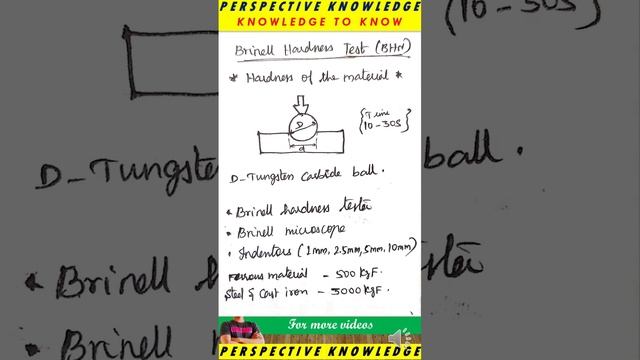 PERSPECTIVE KNOWLEDGE
KNOWLEDGE TO KNOW
Brinell Hardness Test (BHN)
* Hardness of the material *
D
d
{Time
10-30S}
D-Tungsten carbide ball.
• Brinell hardness tester
• Brinell microscope
• Indentors (1mm, 2.5mm, 5mm, 10mm)
Ferrous material - 500 kgF.
Steel & Cast iron - 3000 kgF.
For more videos
PERSPECTIVE KNOWLEDGE
(10-30S
D-Tungste
ball.
• Brinell h
ster
• Brinell